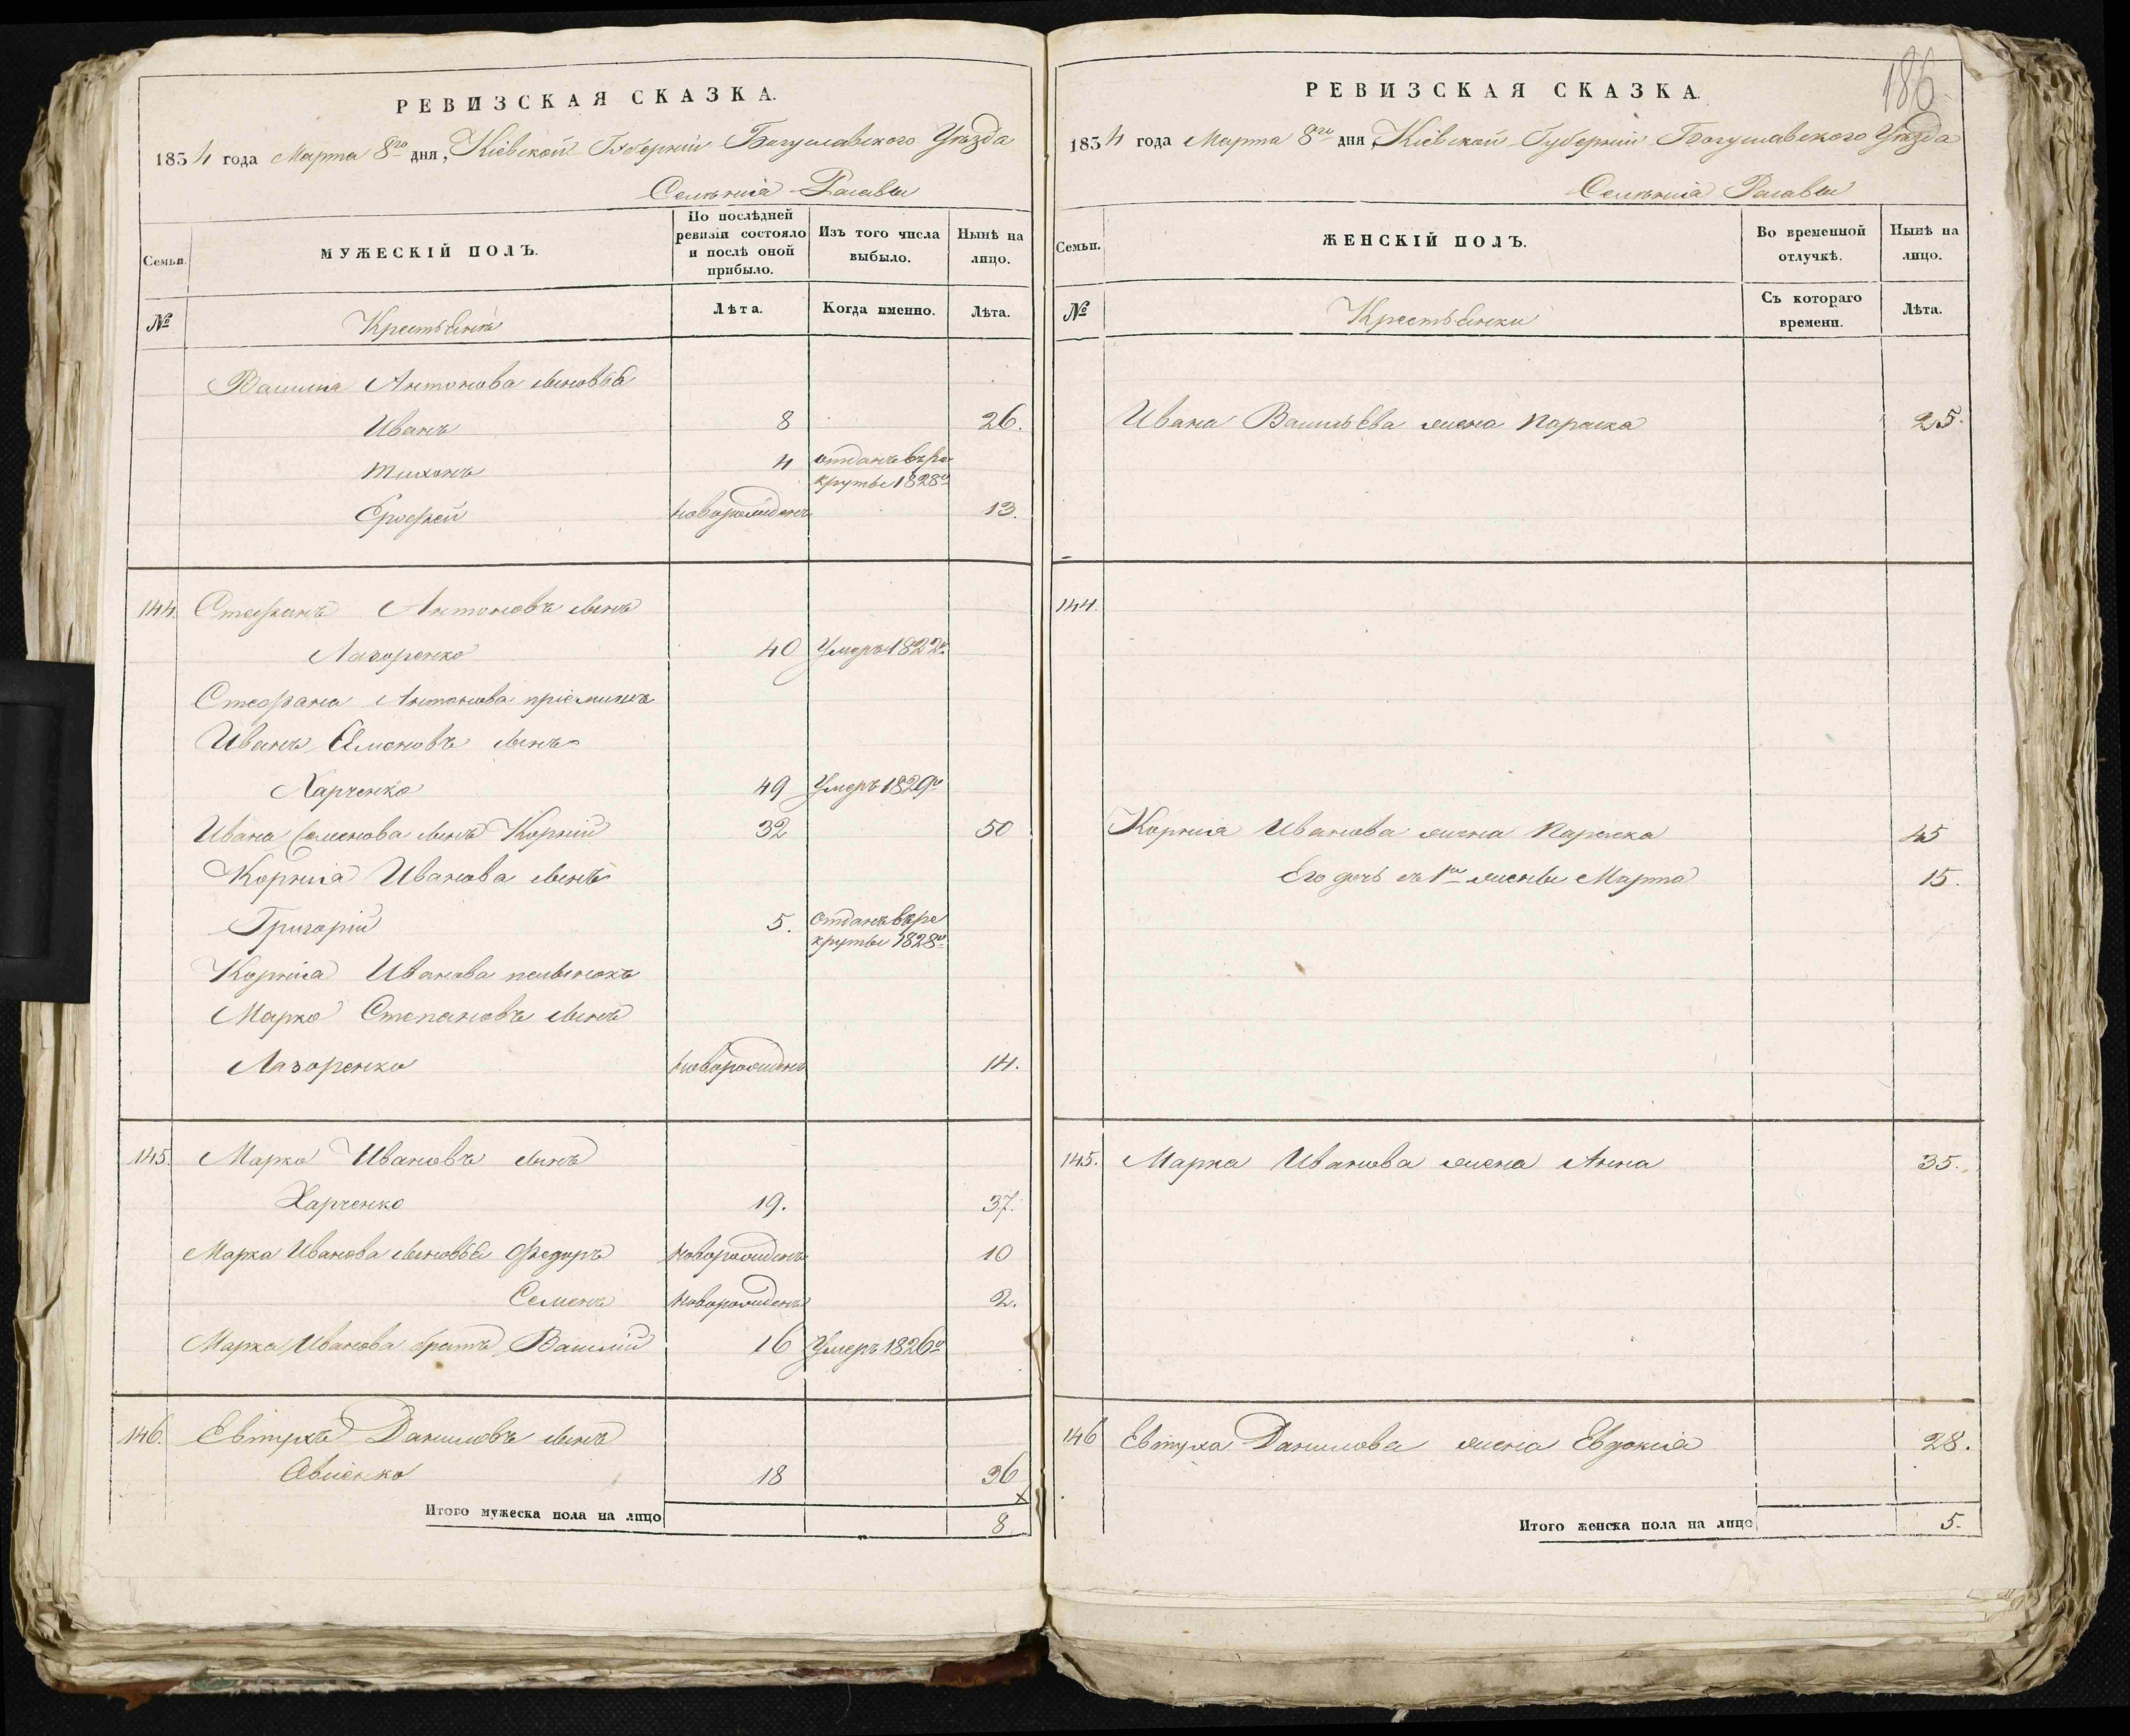 186
РЕВИЗСКАЯ СКАЗКА.
1834 года Марта 8го дня, Кіевской Губерніи Богуславского Уѣзда
Селѣнія Расавы
Семьи.
МУЖЕСКІЙ ПОЛЪ.
По послѣдней ревизіи состояло и послѣ оной прибыло.
Изъ того числа выбыло.
Нынѣ на лицо.
№
Крестьяне
Лѣта.
Когда именно.
Лѣта.
Василія Антонова сыновья
Иванъ 8 26.
Тихонъ 4 отданъ въ ре
круты 1828го
Ерофей новорожденъ 13.
144. Стефанъ Антоновъ сынъ
Лазоренко 40 Умеръ 1822го
Стефана Антонова пріемышъ
Иванъ Семеновъ сынъ
Харченко 49 Умеръ 1829го
Ивана Семенова сынъ Корній 32 50
Корнія Иванова сынъ
Григорій 5. отданъ въ ре
круты 1828го
Корнія Иванова
Марко Степановъ сынъ
Лазоренко новорожденъ 14.
145. Марко Ивановъ сынъ
Харченко 19. 37.
Марка Иванова сыновья Федоръ новорожденъ 10
Семенъ новорожденъ 2.
Марка Иванова братъ Василій 16 Умеръ 1826го
146. Евтухъ Даниловъ сынъ
18 36
Итого мужеска пола на лицо 8
РЕВИЗСКАЯ СКАЗКА.
1834 года Марта 8го дня, Кіевской Губерніи Богуславского Уѣзда
Селѣнія Расавы
Семьи.
ЖЕНСКІЙ ПОЛЪ.
Во временной отлучкѣ.
Нынѣ на лицо.
№
Крестьянки
Съ котораго времени.
Лѣта.
Ивана Васильева жена Параска 25.
144.
Корнія Иванова жена Параска 45
Его дочь съ 1й жены Марта 15.
145. Марка Иванова жена Анна 35.
146 Евтуха Данилова жена Евдокія 28.
Итого женска пола на лицо 5.